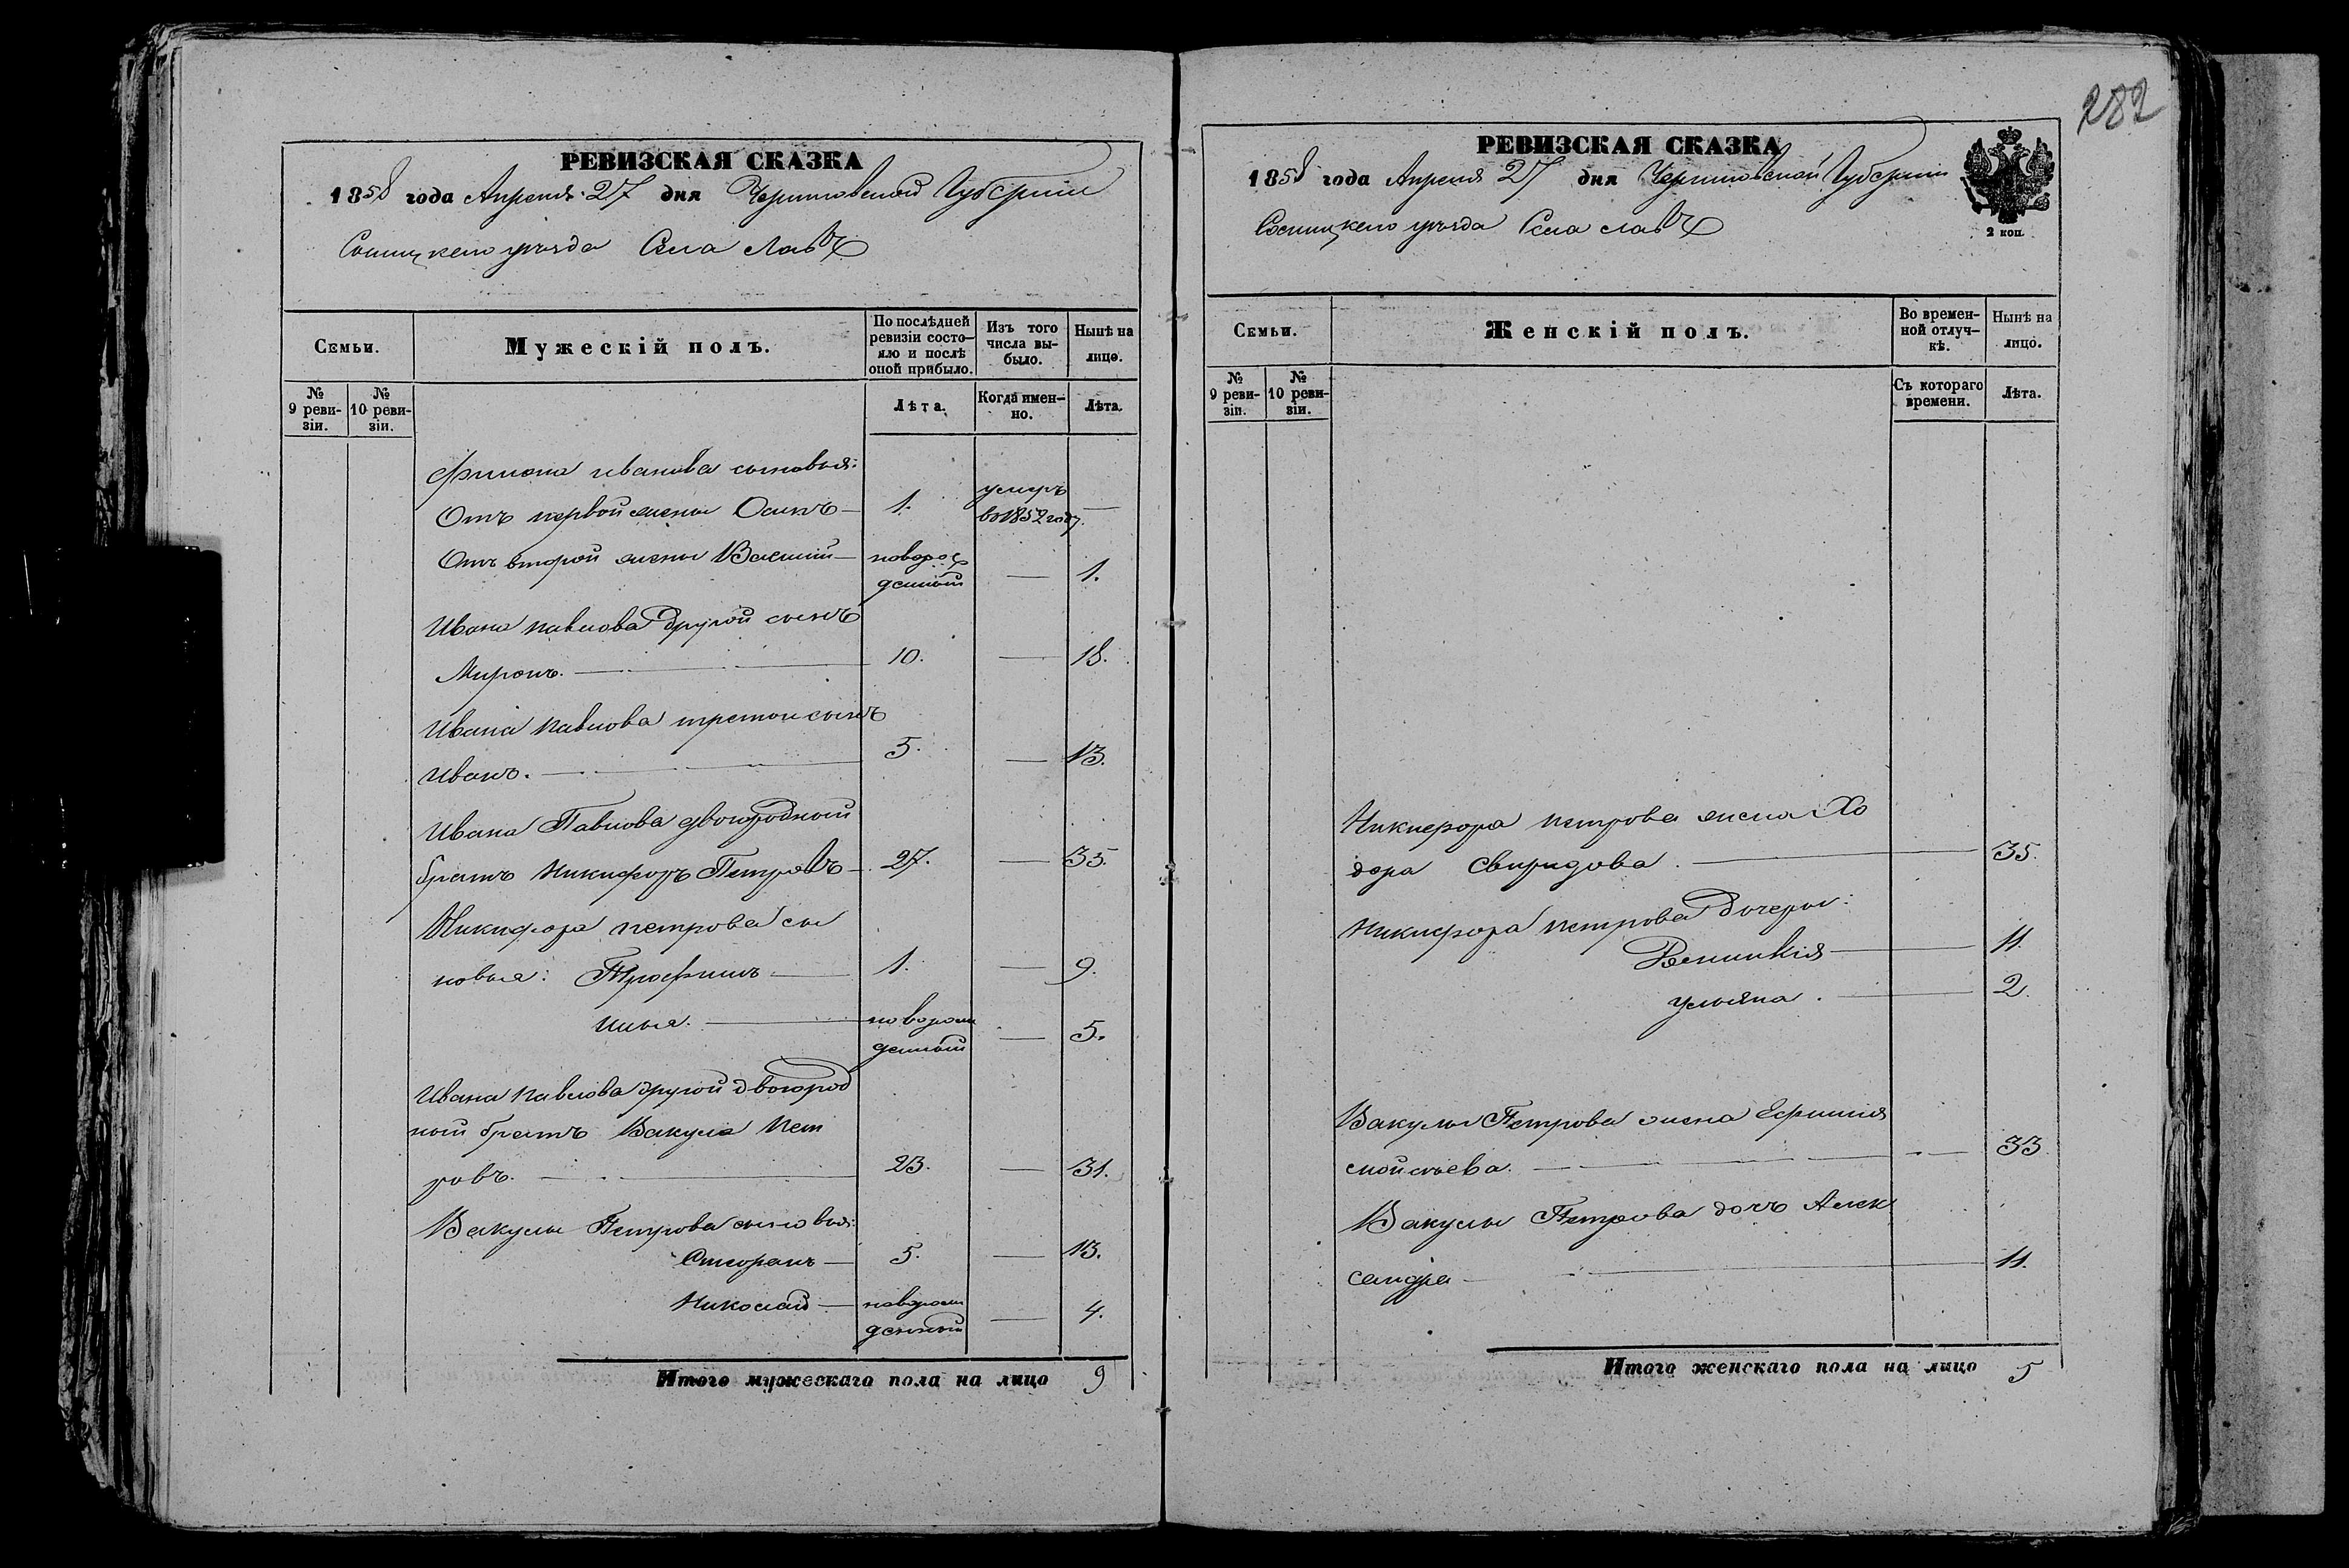 282
РЕВИЗСКАЯ СКАЗКА
1858 года Апреля 27 дня Черниговской Губернии
Сосницкого уезда Села Лавъ
Семьи.
Мужескій полъ.
По послѣдней ревизіи состо-
яло и послѣ
оной прибыло.
Изъ того
числа вы-
было.
Нынѣ на
лицо.
№
9 реви-
зіи.
№
10 реви-
зіи.
Лѣта.
Когда имен-
но.
Лѣта.
Филона иванова сыновья:
Отъ первой жены Осипъ 1. умеръ в 1852 году —
Отъ второй жены Василий новорож
денный — 1.
Ивана павлова другой сынъ
Миронъ. 10. — 18.
Ивана павлова третий сынъ
Иванъ. 5. — 13.
Ивана Павлова двоюродный
братъ Никифоръ Петровъ 27. — 35.
Никифора петрова сы
новья: Трофимъ 1. — 9.
Илья. новорож
денный — 5.
Ивана павлова другой двоюрод
ный братъ Вакула Пет
ровъ. 23. — 31.
Вакулы Петрова сыновья:
5. — 13.
Николай новорож
денный — 4.
Итого мужескаго пола на лицо 9
РЕВИЗСКАЯ СКАЗКА
1858 года Апреля 27 дня Черниговской Губернии
Сосницкого уезда Села Лавъ
2 коп.
Семьи.
Женскій полъ.
Во времен-
ной отлуч-
кѣ.
Нынѣ на
лицо.
№
9 реви-
зіи.
№
10 реви-
зіи.
Съ котораго
времени.
Лѣта.
Никифора петрова жена Хо
дора Свиридова. 35.
Никифора петрова дочери:
11.
Ульяна. 2.
Вакулы Петрова жена Ефимия
33.
Вакулы Петрова дочь Алек
сандра 11.
Итого женскаго пола на лицо 5